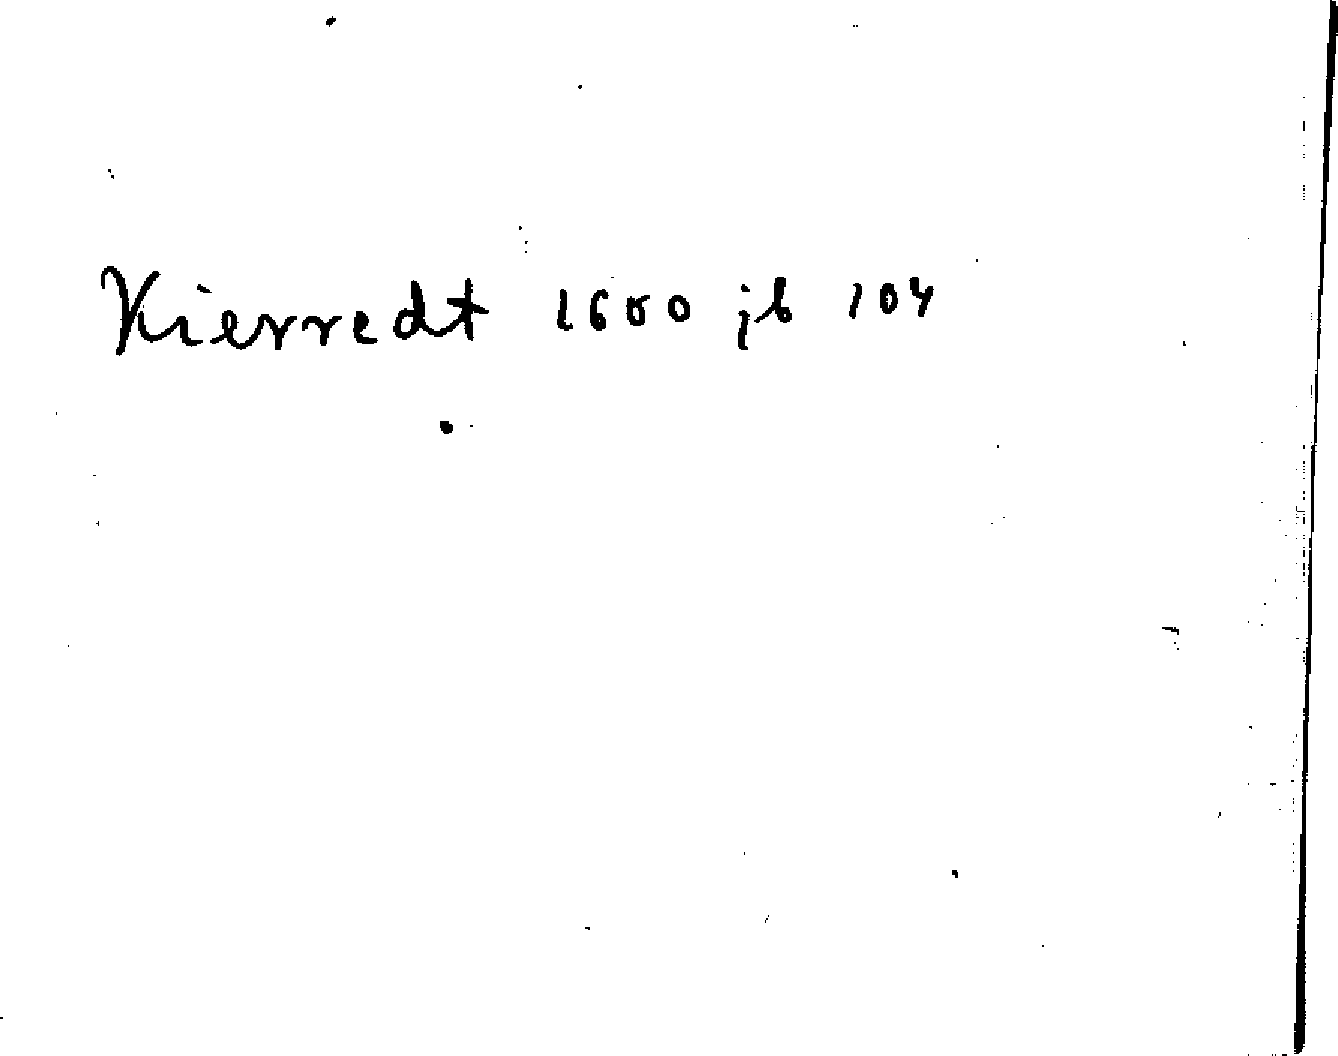 Kierredt 1600 jb 104